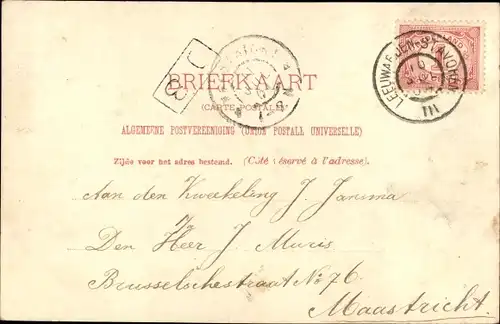 LEEUWARDEN-STAVOREN
III
BRIEFKAART
(CARTE POSTALE)
ALGEMEENE POSTVEREENIGING (UNION POSTALE UNIVERSELLE)
Zijde voor het adres bestemd. (Côté réservé à l'adresse).
Aan den Kweekeling J. Jansma
Den Heer J. Muris
Brusselschestraat No 76.
Maastricht